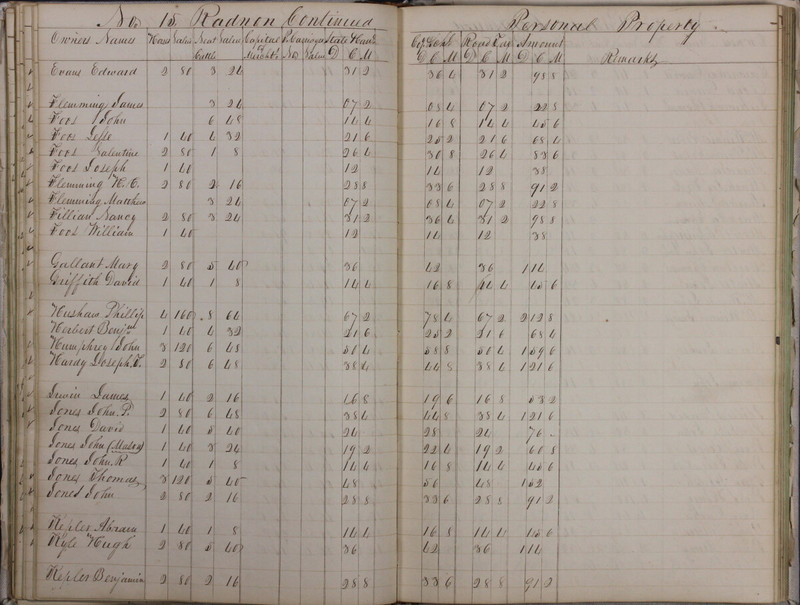 No. 15. Radnor Continued Personal Property
Owners Names Horses Value Neat Cattle Value Capital Mercht's P. Carriages No Value State D C M Co. & Schl D C M Road Tax D C M Amount D C M Remarks
Evans Edward 2 80 3 24 31 2 36 4 31 2 98 8
Flemming James 3 24 07 2 08 4 07 2 22 8
Foos John 6 48 14 4 16 8 14 4 45 6
Foos 1 40 4 32 21 6 25 2 21 6 68 4
Foos Valentine 2 80 1 8 26 4 30 8 26 4 83 6
Foos Joseph 1 40 12 14 12 38
Flemming H. C. 2 80 2 16 28 8 33 6 28 8 91 2
Flemming Matthew 3 24 07 2 08 4 07 2 22 8
Fillian Nancy 2 80 3 24 31 2 36 4 31 2 98 8
Foos William 1 40 12 14 12 38
Gallant Mary 2 80 5 40 36 42 36 1 14
Griffith David 1 40 1 8 14 4 16 8 14 4 45 6
Hushaw Phillip 4 160 8 64 67 2 78 4 67 2 2 12 8
Herbert Benjn 1 40 4 32 21 6 25 2 21 6 68 4
Humphrey John 3 120 6 48 50 4 58 8 50 4 1 59 6
Hardy Joseph T. 2 80 6 48 38 4 44 8 38 4 1 21 6
Irwin James 1 40 2 16 16 8 19 6 16 8 53 2
Jones John. P. 2 80 6 48 38 4 44 8 38 4 1 21 6
Jones David 1 40 5 40 24 28 24 76
Jones John (Mason) 1 40 3 24 19 2 22 4 19 2 60 8
Jones John. R 1 40 1 8 14 4 16 8 14 4 45 6
Jones Thomas 3 120 5 40 48 56 48 1 52
Jones John 2 80 2 16 28 8 33 6 28 8 91 2
Kepler Abram 1 40 1 8 14 4 16 8 14 4 45 6
Kyle Hugh 2 80 5 40 36 42 36 1 14
Kepler Benjamin 2 80 2 16 28 8 33 6 28 8 91 2